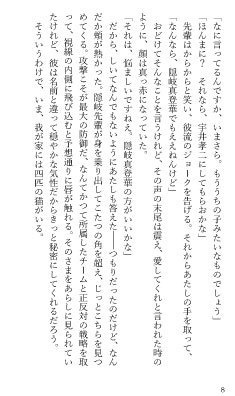 「なに言ってるんですか、いまさら。もううちの子みたいなものでしょう」
「ほんまに？　それなら、宇井孝二にしてもらおかな」
先輩はからからと笑い、彼流のジョークを告げる。それからあたしの手を取って、
「なんなら、隠岐真登華でもええねんけど」
おどけてそんなことを言うけれど、その声の末尾は震え、愛してくれと言われた時の
ように、顔は真っ赤になっていた。
「それは、悩ましいですねえ。隠岐真登華の方がいいかな」
だから、しいてなんでもないようにあたしも答えた――つもりだったのだけど、なん
だか頬が熱かった。隠岐先輩が身を乗り出してこたつの角を超え、じっとこちらを見つ
めてくる。攻撃こそが最大の防御だ、なんてかつて所属したチームと正反対の戦略を取
って、視線の内側に飛び込むと予想通りに唇が触れる。そのさまをあらしに見られてい
たけれど、彼は名前と違って穏やかな気性だからきっと秘密にしてくれるだろう。
そういうわけで、いま、我が家には四匹の猫がいる。
8